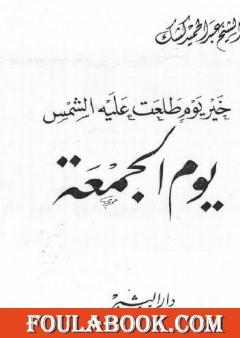 الشيخ عبد الحميد كشك
خير يوم طلعت عليه الشمس
يوم الجمعة
دار البشير
FOULABOOK.COM